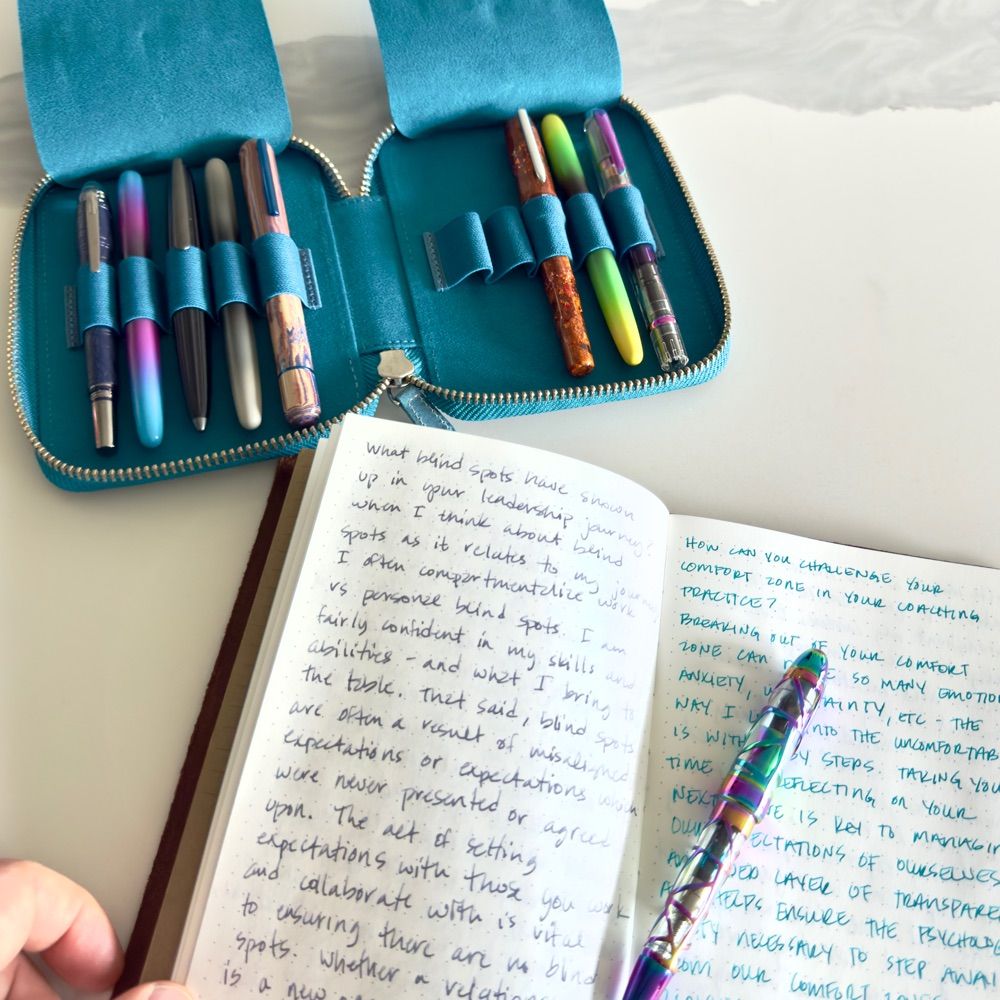 What blind spots have shown
up in your leadership journey?
when I think about blind
spots as it relates to my
I often compartmentalize work
vs personal blind spots. I am
fairly confident in my skills and
abilities - and what I bring to
the table. That said, blind spots
are often a result of misaligned
expectations or expectations which
were never presented or agreed
upon. The act of setting
expectations with those you work
and collaborate with is vital
to ensuring there are no blind
spots. whether a
is a new
HOW CAN YOU CHALLENGE YOUR
COMFORT ZONE IN YOUR COACHING
PRACTICE?
BREAKING OUT OF YOUR COMFORT
ZONE CAN SO MANY
ANXIETY, ETC - THE
WAY I INTO THE
IS WITH STEPS. TAKING
TIME REFLECTING ON YOUR
IS KEY TO
OF OURSELVES
LAYER OF
HELPS ENSURE THE
NECESSARY TO STEP
OUR COMFORT